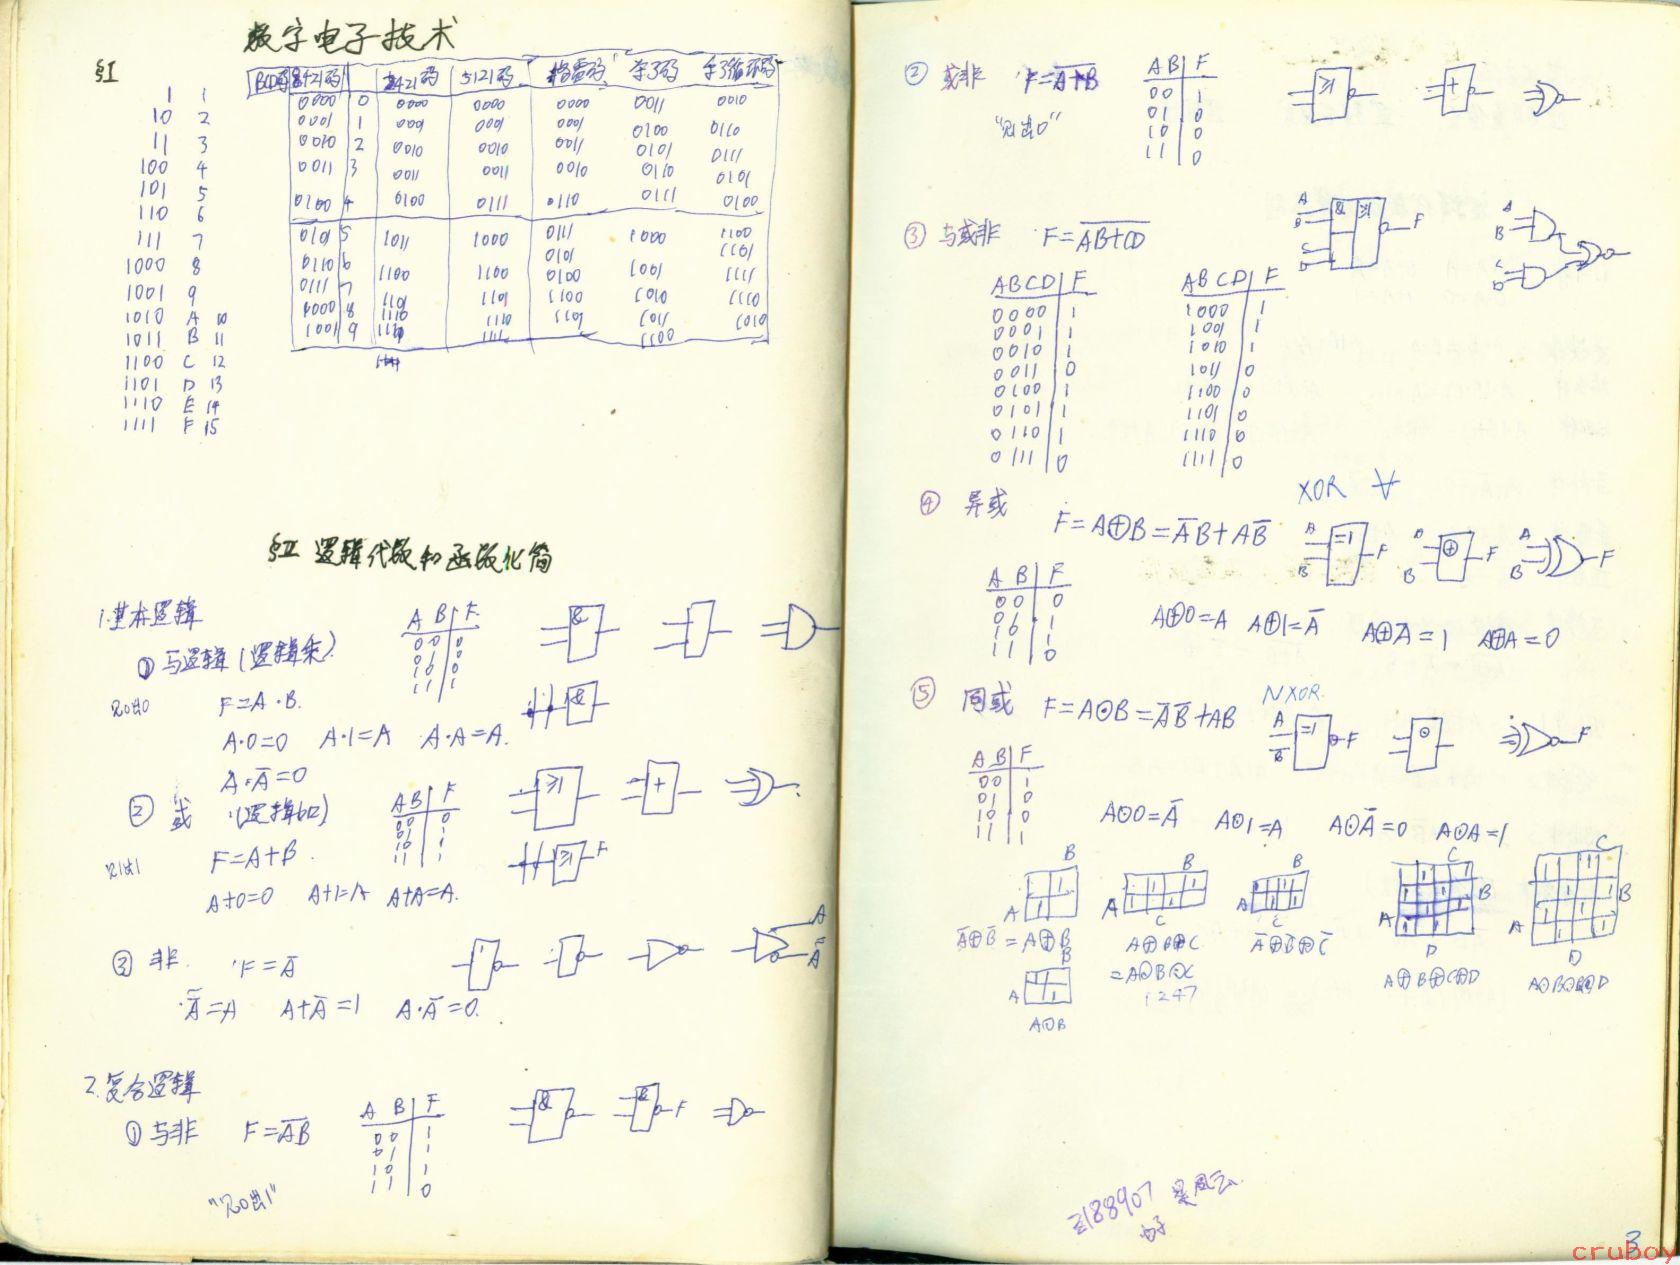 数字电子技术
§I
1 1
10 2
11 3
100 4
101 5
110 6
111 7
1000 8
1001 9
1010 A 10
1011 B 11
1100 C 12
1101 D 13
1110 E 14
1111 F 15
BCD码 8421码 2421码 5121码 格雷码 余3码 余3循环码
0000 0 0000 0000 0000 0011 0010
0001 1 0001 0001 0001 0100 0110
0010 2 0010 0010 0011 0101 0111
0011 3 0011 0011 0010 0110 0101
0100 4 0100 0111 0110 0111 0100
0101 5 1011 1000 0111 1000 1100
0110 6 1100 1100 0101 1001 1101
0111 7 1101 1101 0100 1010 1111
1000 8 1110 1110 1100 1011 1110
1001 9 1111 1101 1100 1010
§II 逻辑代数和函数化简
1.基本逻辑
① 与逻辑(逻辑乘)
A B F
0 0 0
0 1 0
1 0 0
1 1 1
&
见0出0
F=A·B.
&
A·0=0 A·1=A A·A=A.
A·A̅=0
② 或 (逻辑加)
A B F
00 0
01 1
10 1
11 1
≥1 +
见1出1
F=A+B.
≥1 F
A+0=0 A+1=A A+A=A.
③ 非. F=A̅
1 A A̅
A̿=A A+A̅=1 A·A̅=0.
2.复合逻辑
① 与非 F=A̅B̅
A B F
0 0 1
0 1 1
1 0 1
1 1 0
& & F
"见0出1"
② 或非 F=A̅+̅B̅
"见1出0"
A B F
00 1
01 0
10 0
11 0
≥1 +
③ 与或非 F=A̅B̅+̅C̅D̅
A B C D & ≥1 F
A B C D
ABCD F ABCD F
0000 1 1000 1
0001 1 1001 1
0010 1 1010 1
0011 0 1011 0
0100 1 1100 0
0101 1 1101 0
0110 1 1110 0
0111 0 1111 0
XOR ∀
④ 异或 F=A⊕B=A̅B+AB̅
A B =1 F
A B ⊕ F
A B F
A B F
0 0 0
0 1 1
1 0 1
1 1 0
A⊕0=A A⊕1=A̅ A⊕A̅=1 A⊕A=0
NXOR
⑤ 同或 F=A⊙B=A̅B̅+AB
A B =1 F
⊙ F
A B F
00 1
01 0
10 0
11 1
A⊙0=A̅ A⊙1=A A⊙A̅=0 A⊙A=1
B B B C C
A A A A B A B
C C D D
A̅⊕B̅=A⊕B A⊕B⊕C A̅⊕B̅⊕C̅ A⊕B⊕C⊕D A⊙B⊙C⊙D
=A⊙B⊙C
1247
B
A
A⊙B
3
cruboy